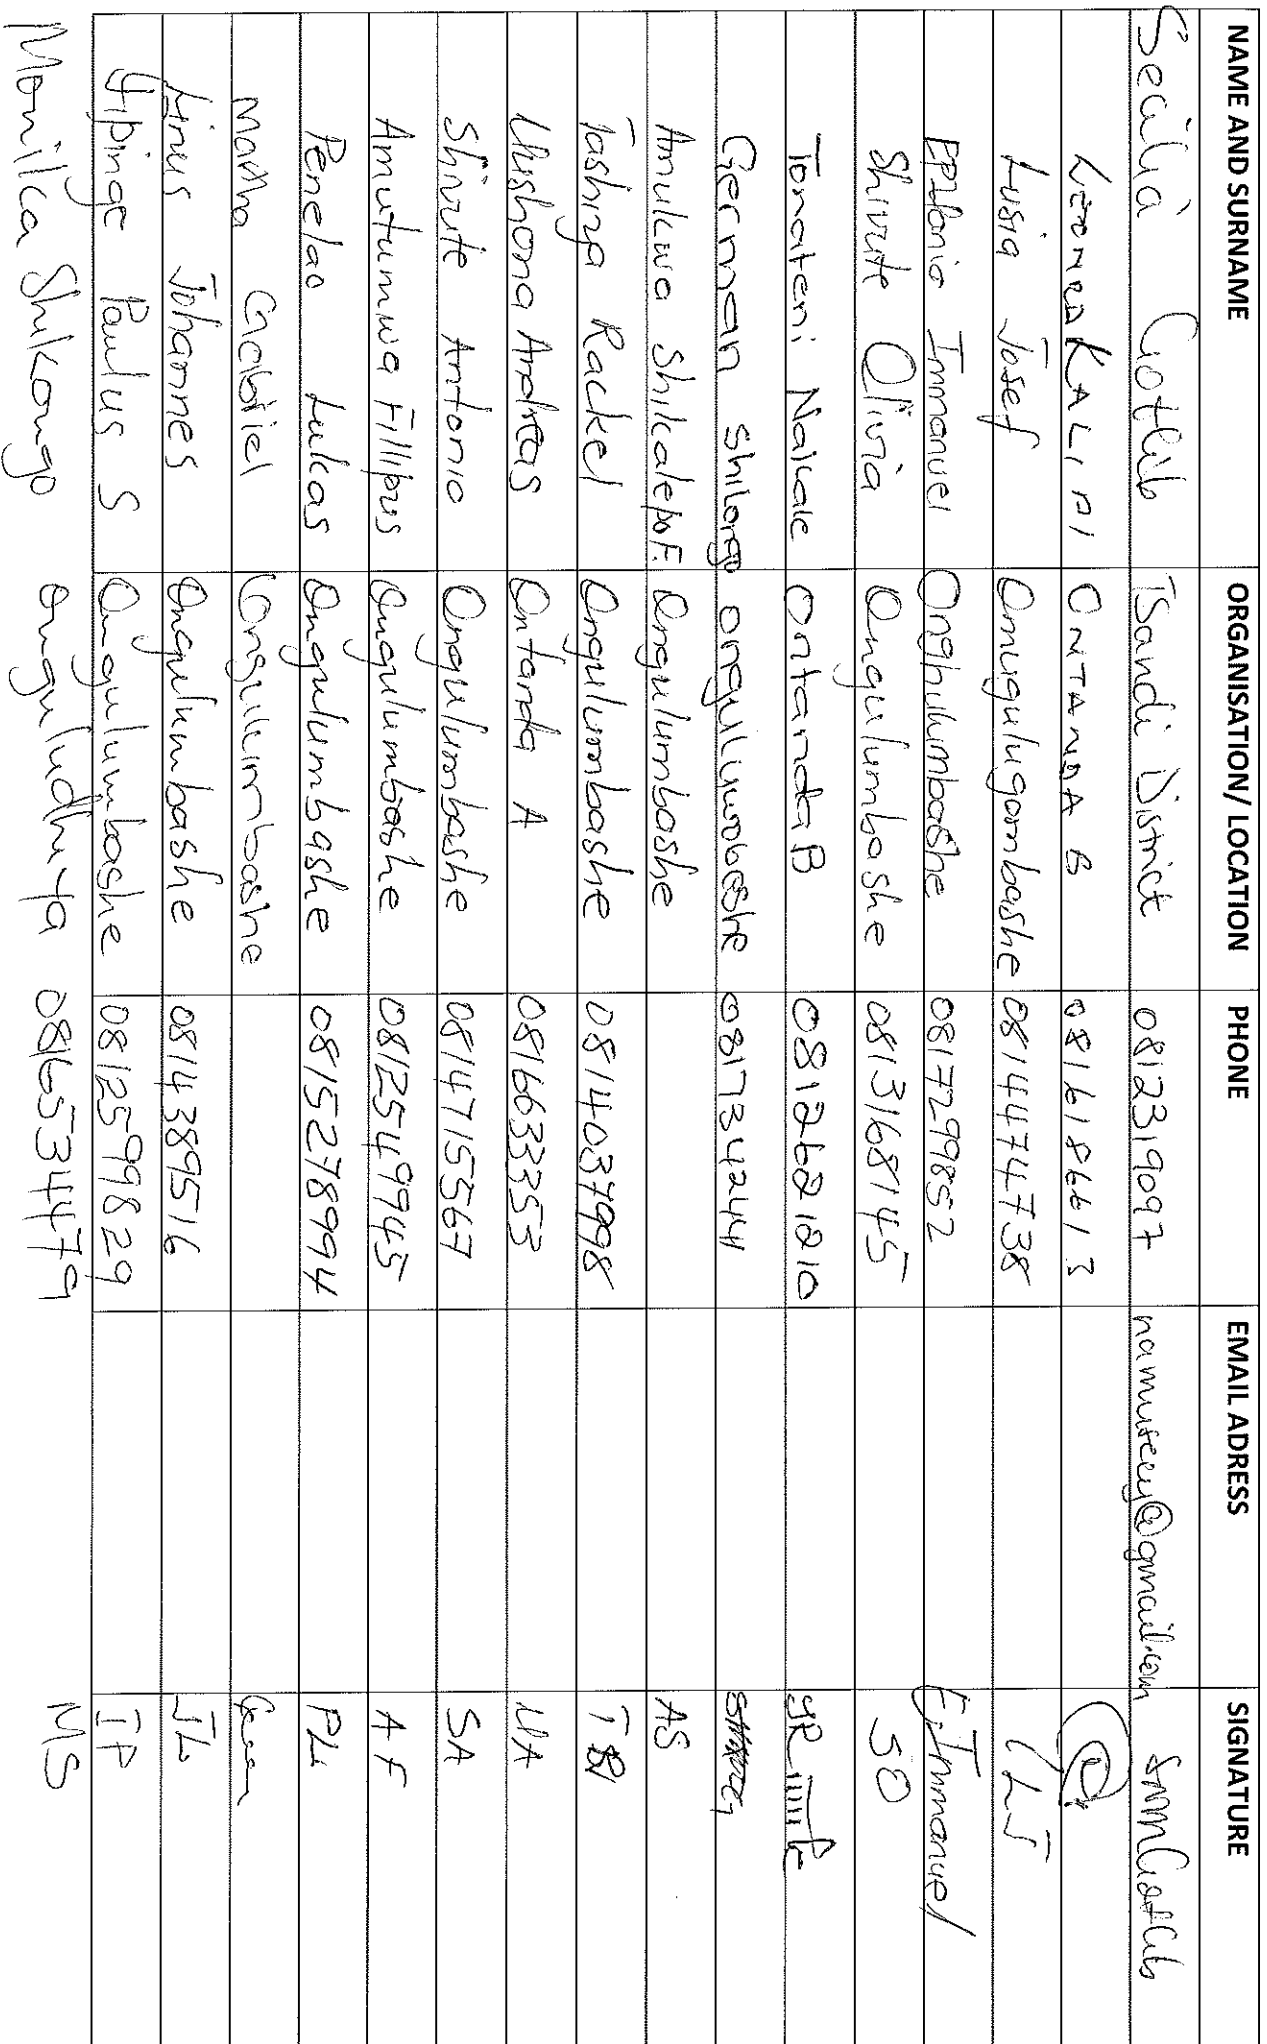 NAME AND SURNAME ORGANISATION/ LOCATION PHONE EMAIL ADRESS SIGNATURE
Secilia Gotlieb Tsandi District 0812319097 namuteey@gmail.com
KALIPI ONTANDA B 0816186613
Lusia Josef Omugulugombashe 0814474738 LJ
Epifania Immanuel Onghulumbashe 0817299852 E.Immanuel
Shivute Olivia Ongulumbashe 0813168145 SO
Tonateni Naikale Ontanda B 0812621210
German Shilongo 0817342441
Amukwa Shikalepo F. Ongulumbashe AS
Tashiya Rackel Ongulumbashe 0814037998
Uushona Andreas Ontanda A 0816633353 UA
Shivute Antonio Ongulumbashe 0814715567 SA
Amutumwa Fillipus Ongulumbashe 0812549945 AF
Penelao Lukas Ongulumbashe 0815278994 PL
Martha Gabriel Ongulumbashe
Linus Johannes Ongulumbashe 0814389516 JL
Iipinge Paulus S Ongulumbashe 0812599829 IP
Monika Shikongo 0816534479 MS